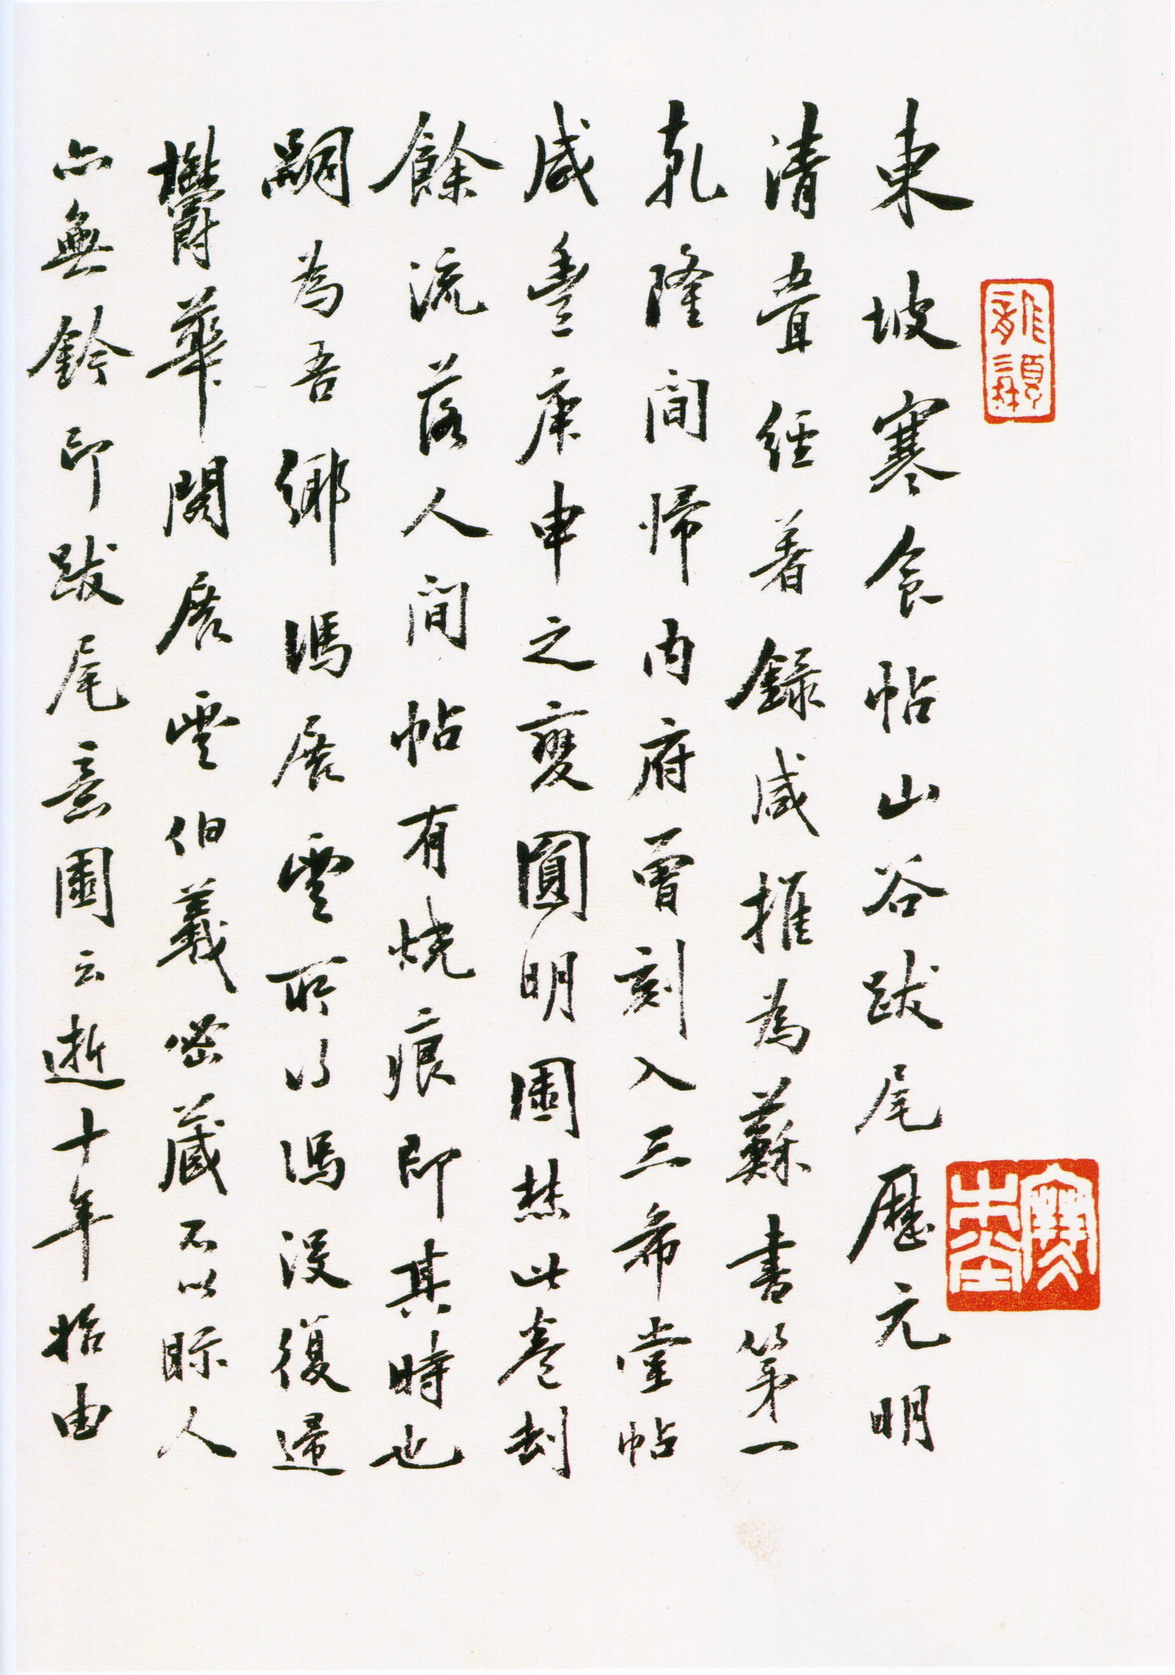 東坡寒食帖山谷跋尾歷元明
清疊經著錄咸推為蘇書第一
乾隆間歸內府曾刻入三希堂帖
咸豐庚申之變圓明園焚此卷劫
餘流落人間帖有燒痕即其時也
嗣為吾鄉馮展雲所得馮沒復歸
鬱華閣展雲伯羲密藏不以眎人
亦無鈐印跋尾意園云逝十年始由